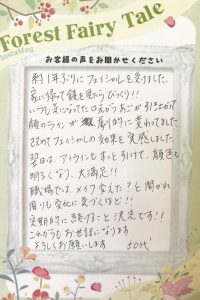 Forest Fairy Tale
InstaMag
お客様の声をお聞かせください
約1年ぶりにフェイシャルを受けました。
家に帰って鏡を見たらびっくり!!
いつも気になっていた口元からあごが引き上がって
顔のラインが劇的に変わってました
改めてフェイシャルの効果を実感しました。
翌日は、アイラインもすっと引けて、顔色も
明るくなり、大満足!!
職場では、メイク変えた??と聞かれ
周りも変化に気づくほど!!
定期的に続けること決定です!!
これからもお世話になります
よろしくお願いします 50代